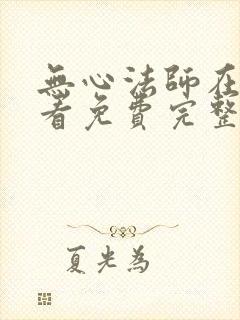 無心法師在
看免費完整
夏光為